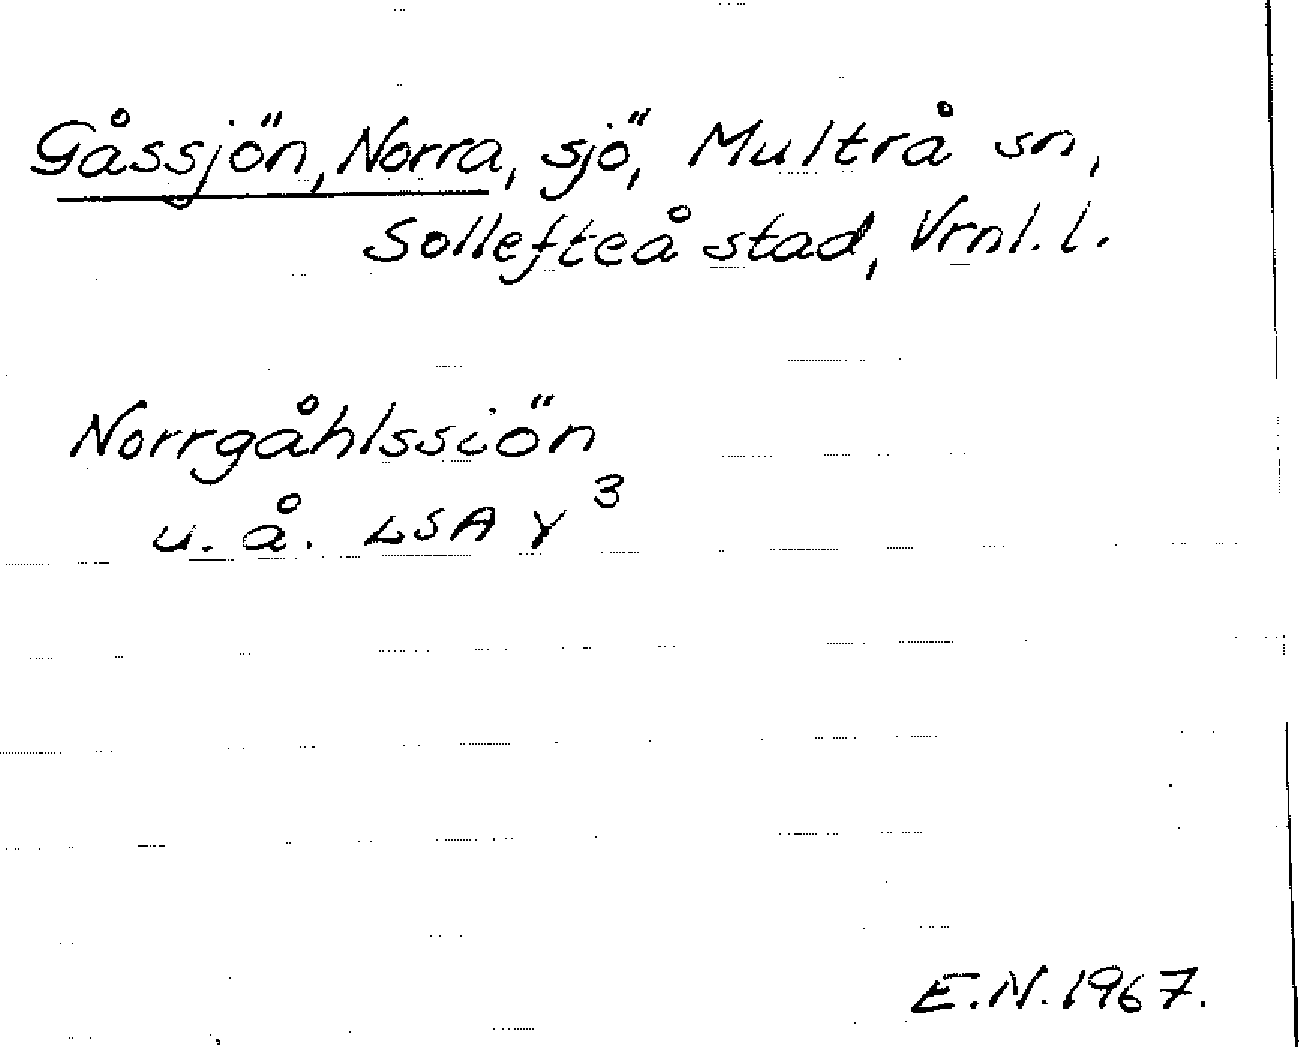 Gåssjön, Norra, sjö, Multrå sn,
Sollefteå stad, Vrnl. l.
Norrgåhlssiön
u. å. LSA Y 3
E.N. 1967.